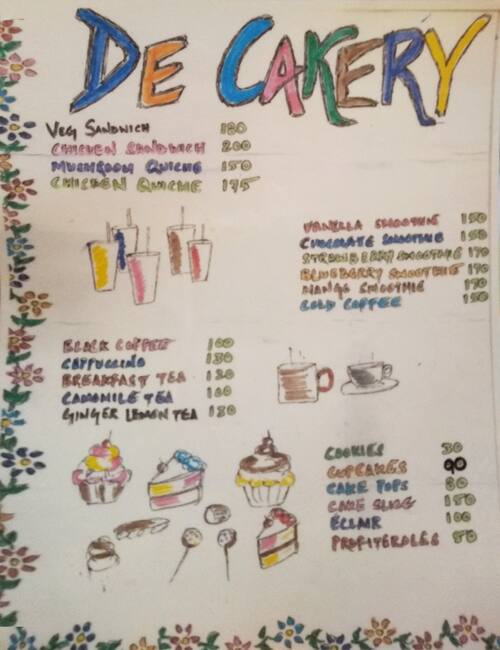 DE CAKERY
VEG SANDWICH 180
CHICKEN SANDWICH 200
MUSHROOM QUICHE 150
CHICKEN QUICHE 175
VANILLA SMOOTHIE 150
CHOCOLATE SMOOTHIE 150
STRAWBERRY SMOOTHIE 170
BLUEBERRY SMOOTHIE 170
MANGO SMOOTHIE 170
COLD COFFEE 150
BLACK COFFEE 100
CAPPUCCINO 130
BREAKFAST TEA 120
CAMOMILE TEA 100
GINGER LEMON TEA 130
COOKIES 30
CUPCAKES 90
CAKE POPS 80
CAKE SLICE 150
ÉCLAIR 100
PROFITEROLES 50